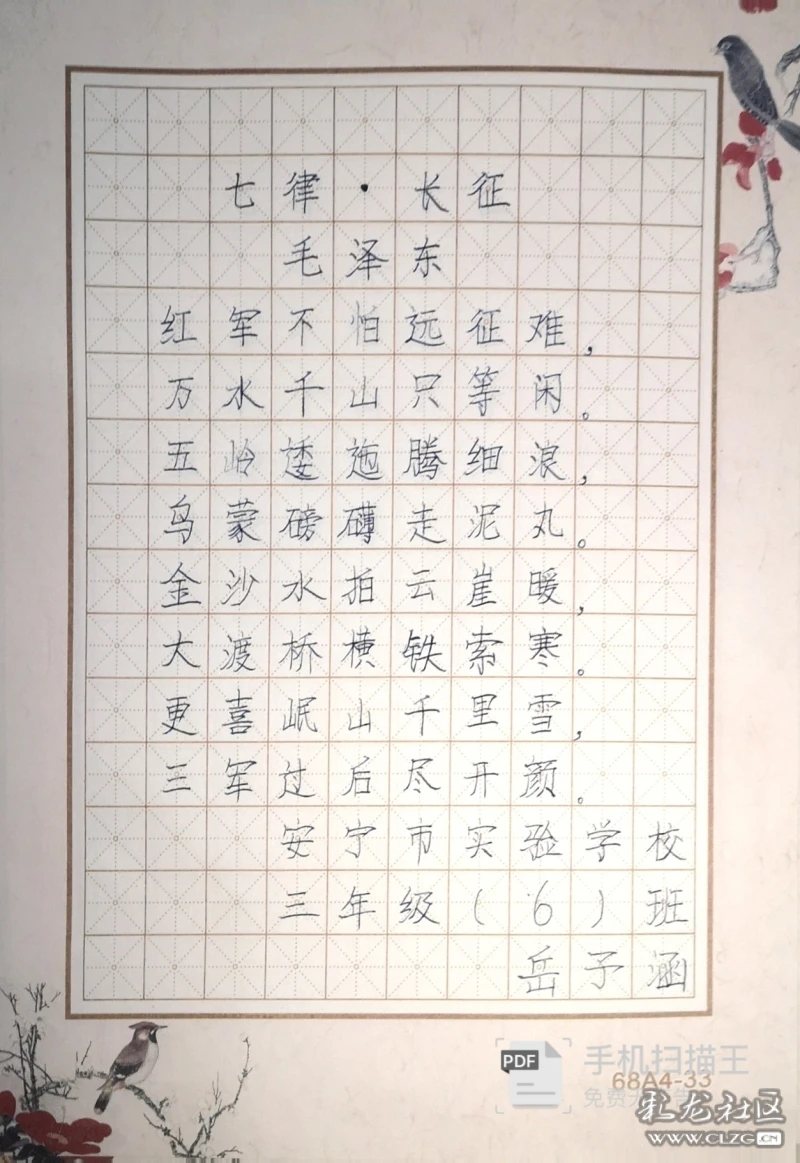 七律·长征
毛泽东
红军不怕远征难，
万水千山只等闲。
五岭逶迤腾细浪，
乌蒙磅礴走泥丸。
金沙水拍云崖暖，
大渡桥横铁索寒。
更喜岷山千里雪，
三军过后尽开颜。
安宁市实验学校
三年级（6）班
岳予涵
PDF 手机扫描王
免费
68A4-33
彩龙社区
WWW.CLZG.CN